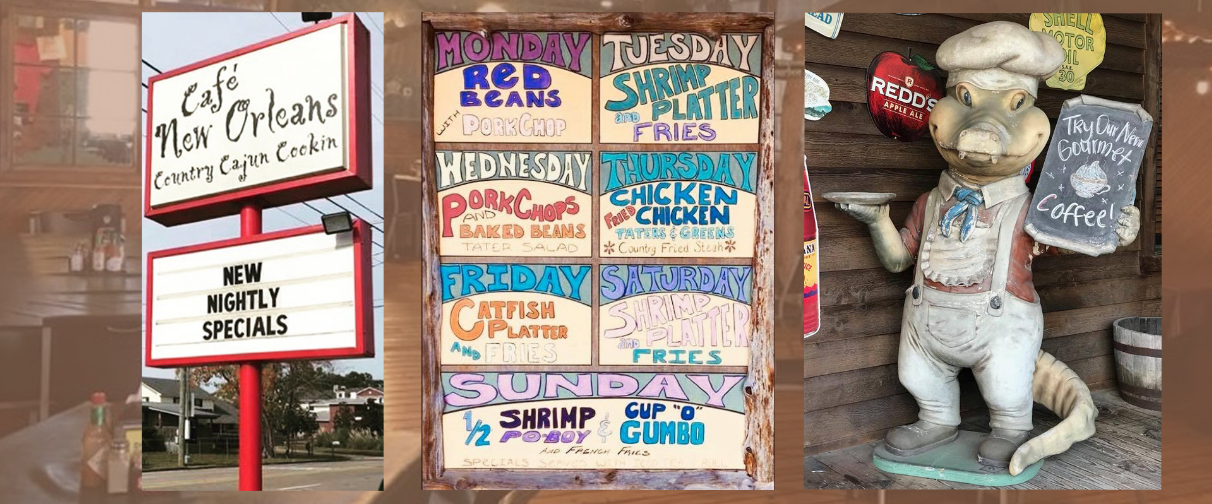 Café
New Orleans
Country Cajun Cookin
NEW
NIGHTLY
SPECIALS
MONDAY
RED
BEANS
WITH PORKCHOP
TUESDAY
SHRIMP
AND PLATTER
FRIES
WEDNESDAY
PORKCHOPS
AND
BAKED BEANS
TATER SALAD
THURSDAY
CHICKEN
FRIED CHICKEN
TATERS & GREENS
Country Fried Steak
FRIDAY
CATFISH
PLATTER
AND FRIES
SATURDAY
SHRIMP
AND PLATTER
FRIES
SUNDAY
1/2 SHRIMP
PO-BOY
&
CUP "O"
GUMBO
AND FRENCH FRIES
SPECIALS
SHELL
MOTOR
OIL
30
REDD'S
APPLE ALE
Try Our New
Gourmet
Coffee!